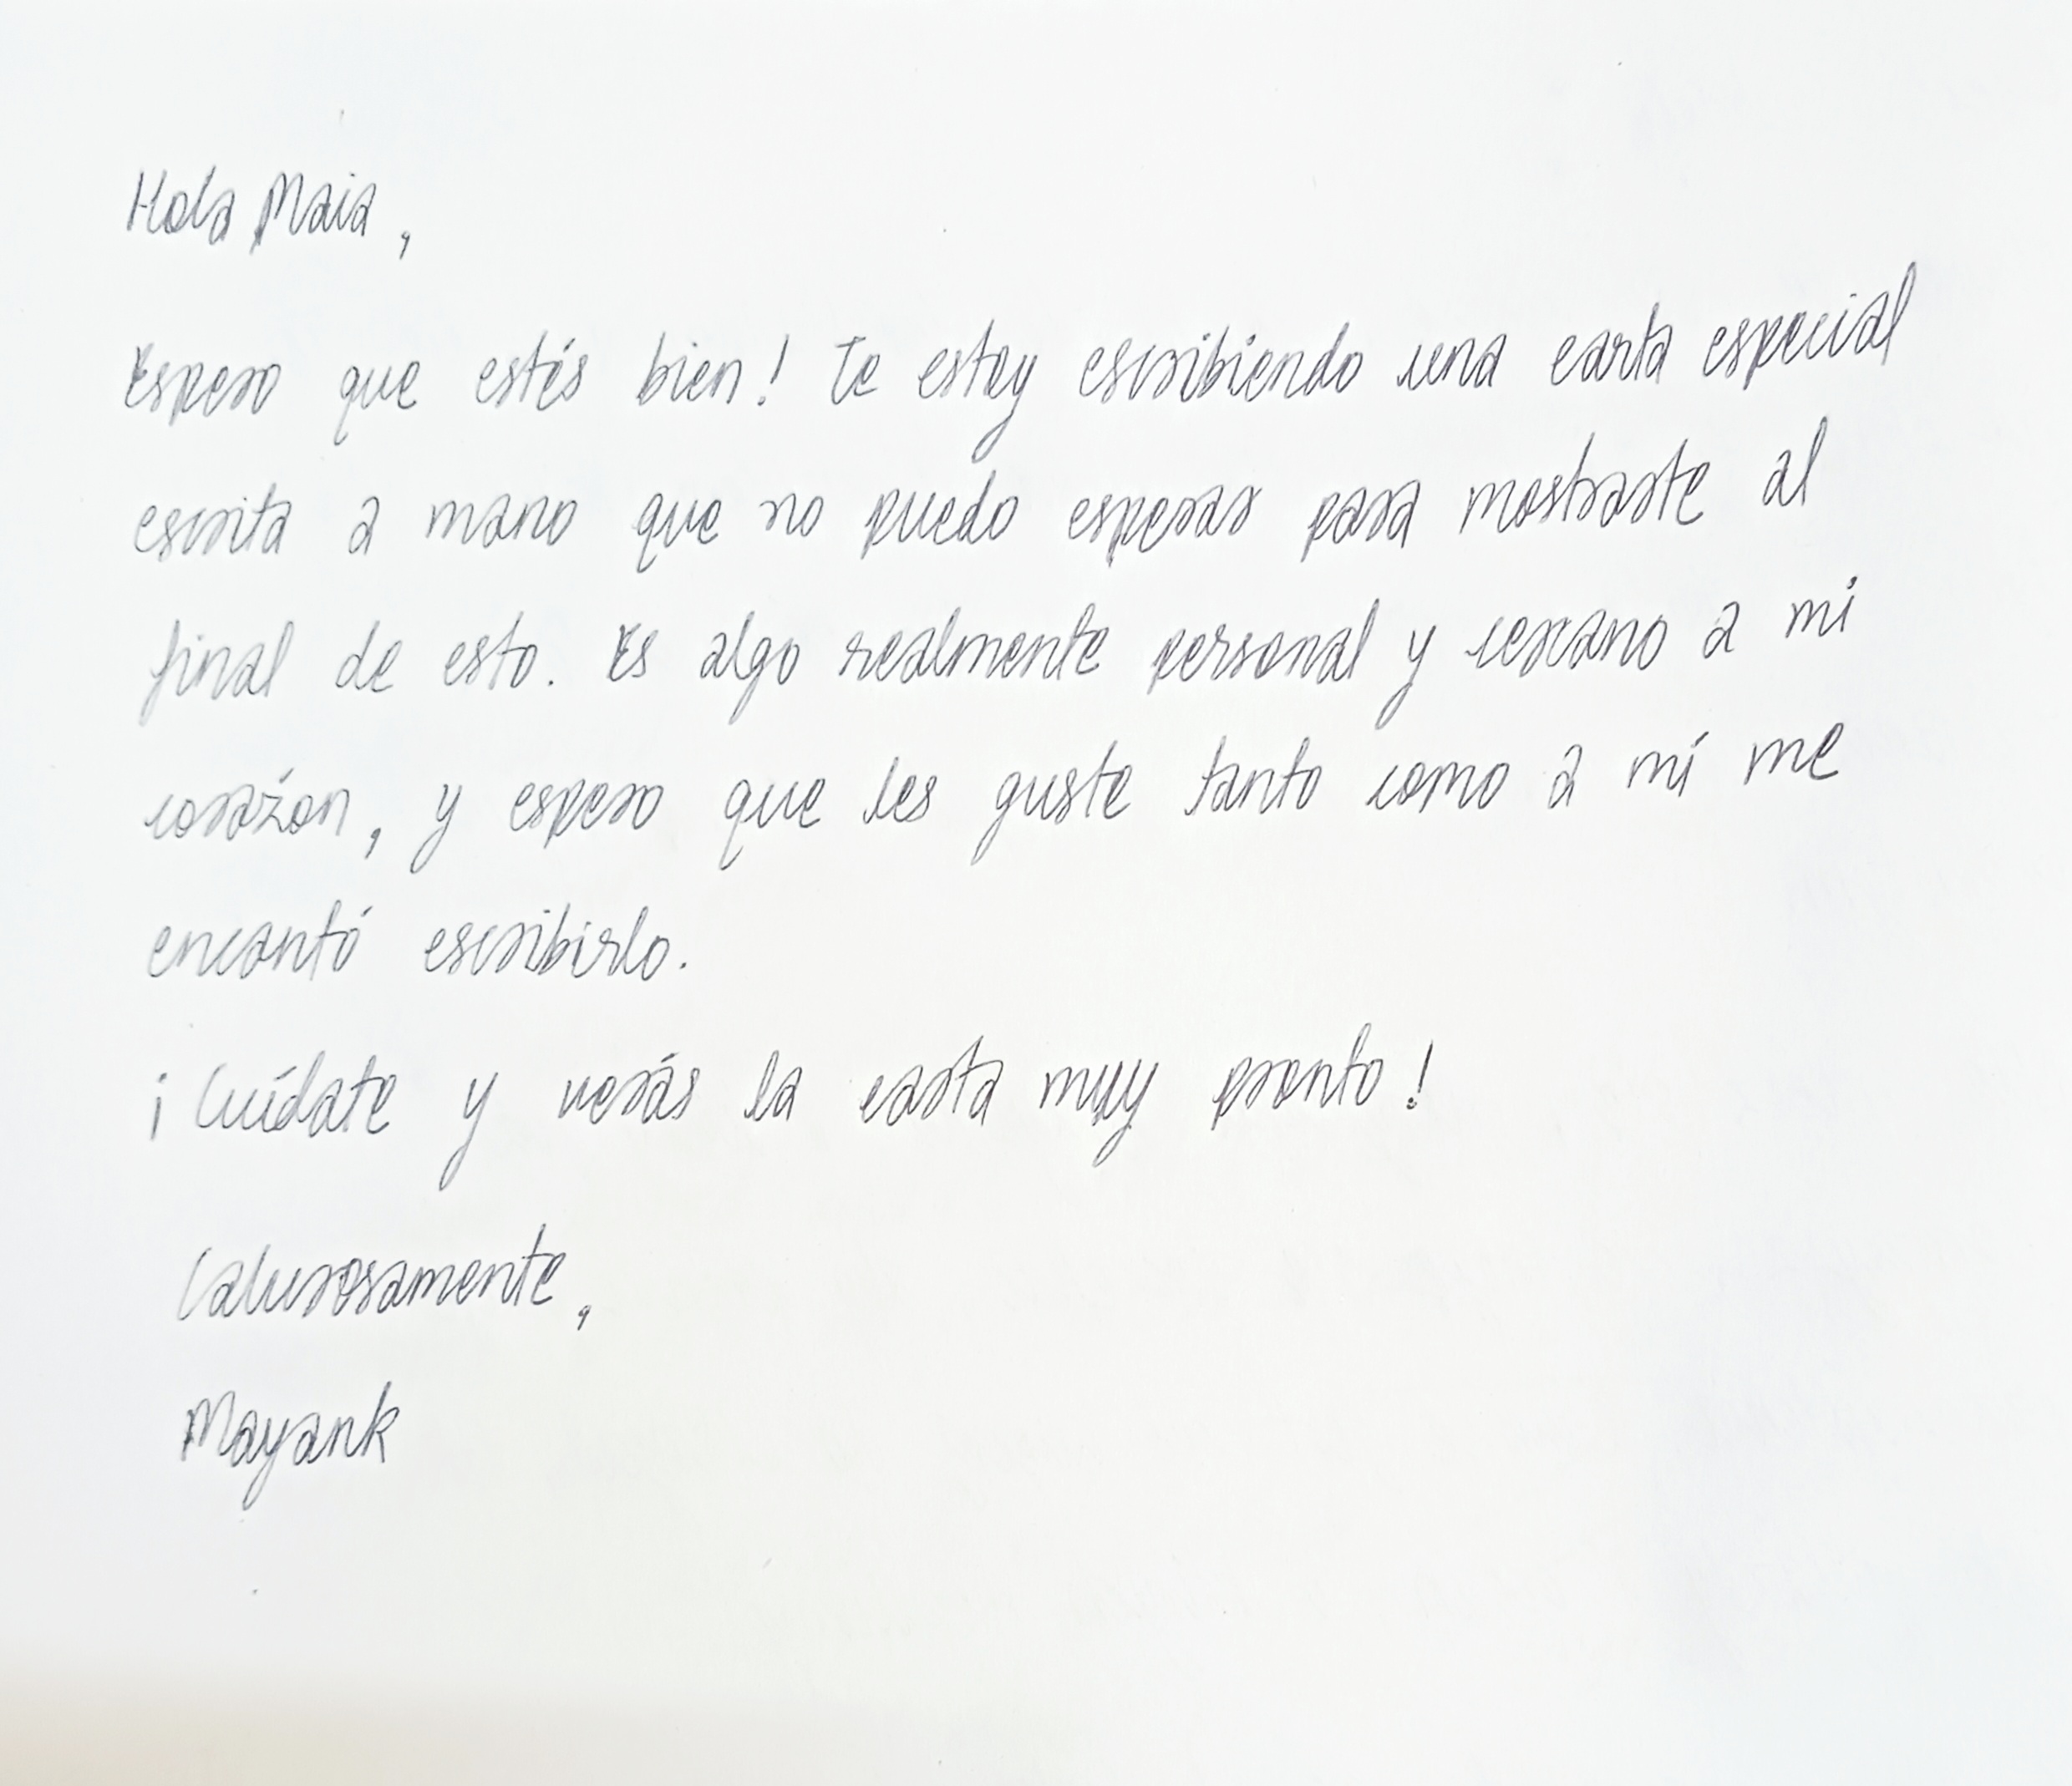 Hola Maia,
Espero que estés bien! Te estoy escribiendo una carta especial
escrita a mano que no puedo esperar para mostrarte al
final de esto. Es algo realmente personal y cercano a mi
corazón, y espero que les guste tanto como a mí me
encantó escribirlo.
¡Cuídate y verás la carta muy pronto!
Calurosamente,
Mayank